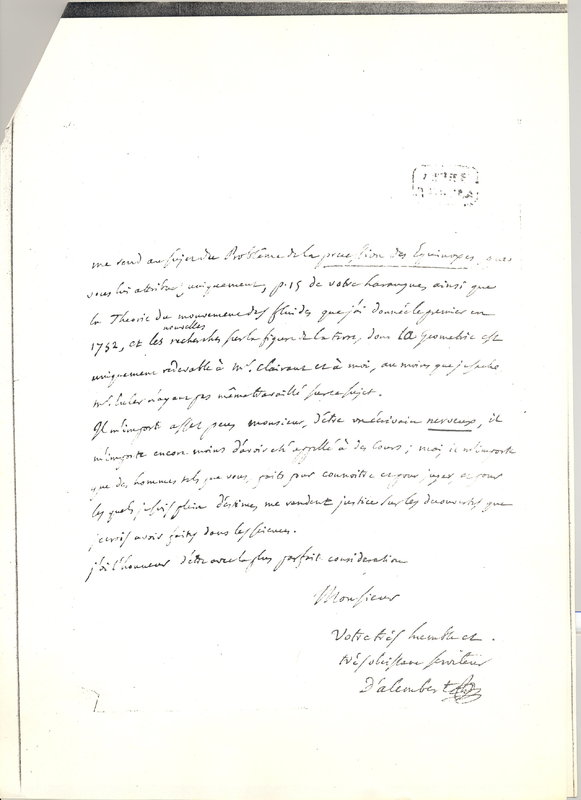 me rend au sujet du Problême de la precession des Equinoxes, que
vous lui attribuez uniquement, p. 15 de votre harangue, ainsi que
la Theorie du mouvement des fluides que j'ai donnée le premier en
nouvelles
1752, et les recherches sur la figure de la terre, dont la Geometrie est
uniquement redevable à Mr. Clairaut et à moi, au moins que je sache
Mr. Euler n'ayant pas même travaillé sur ce sujet.
Il m'importe assez peu, monsieur, d'être un écrivain nerveux, il
m'importe encore moins d'avoir été appellé à des Cours; mais il m'importe
que des hommes tels que vous, faits pour connoître et pour juger, et pour
les quels je suis plein d'estime, me rendent justice sur les decouvertes que
je puis avoir faites dans les sciences.
j'ai l'honneur d'être avec la plus parfaite consideration
Monsieur
Votre très humble et
très obeissant serviteur
D'alembert